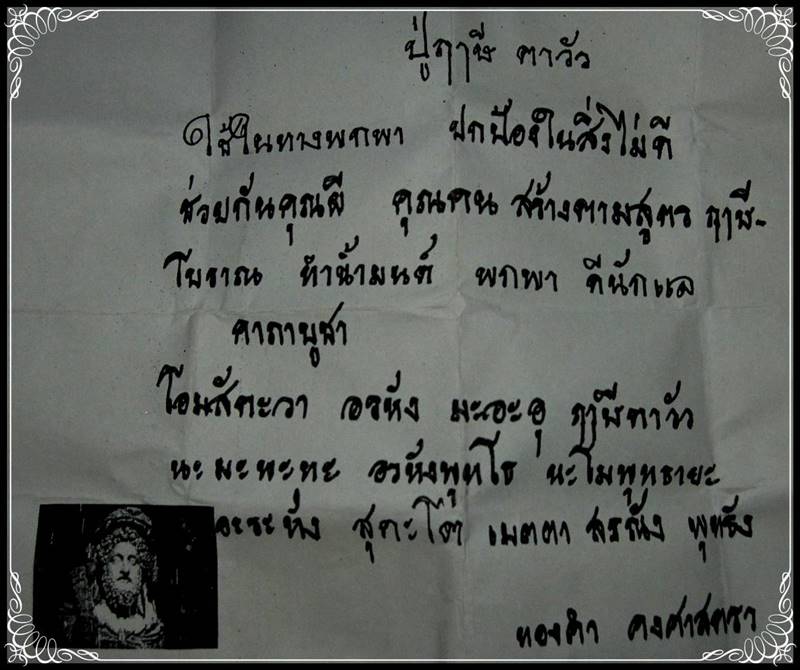 ปู่ฤาษี ตาวัว
ใช้ในทางพกพา ปกป้องในสิ่งไม่ดี
ช่วยกันคุณผี คุณคน สร้างตามสูตร ฤาษี-
โบราณ ทำน้ำมนต์ พกพา ดีนักแล
คาถาบูชา
โอมสัตะวา อรหัง มะอะอุ ฤาษีตาวัว
นะ มะ พะ ทะ อรหังพุทโธ นะโมพุทธายะ
อะระหัง สุคะโต เมตตา สรณัง พุทธัง
ทองดำ คงศาสตรา